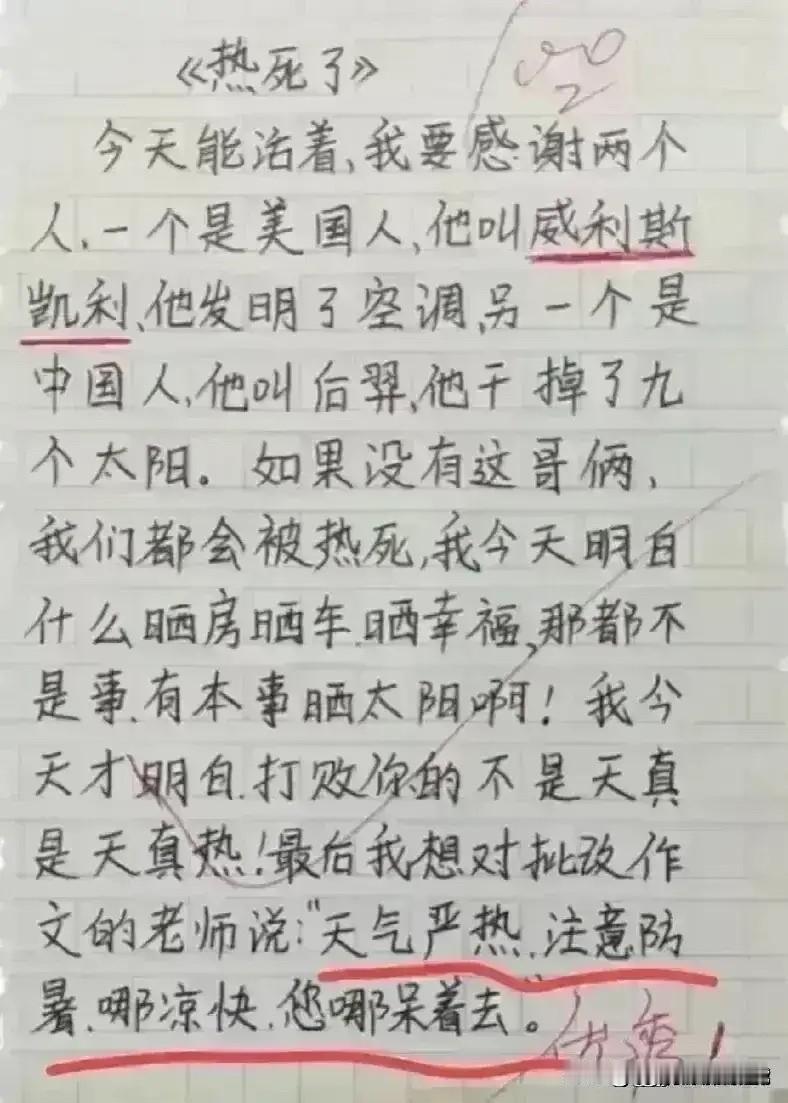 《热死了》
今天能活着、我要感谢两个
人、一个是美国人、他叫威利斯
凯利、他发明了空调、另一个是
中国人、他叫后羿、他干掉了九
个太阳。如果没有这哥俩、
我们都会被热死、我今天明白
什么晒房晒车、晒幸福、那都不
是事、有本事晒太阳啊！我今
天才明白、打败你的不是天真
是天真热！最后我想对批改作
文的老师说：“天气严热、注意防
暑、哪凉快、您哪呆着去”。
优秀！